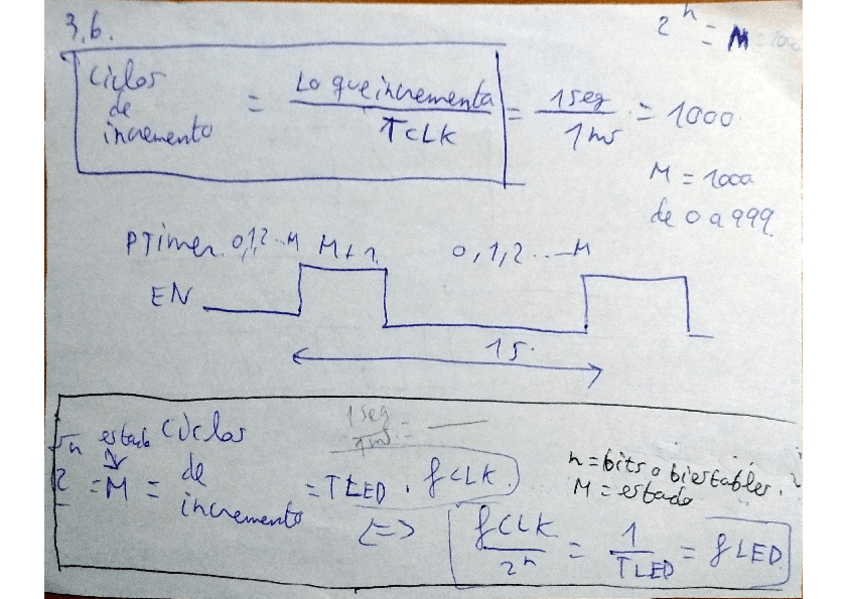 3,6.
2^n = M
Ciclos de incremento = Lo que incrementa / TCLK = 1seg / 1ms = 1000
M = 1000
de 0 a 999
PTimer 0,1,2...M M+1 0,1,2...M
EN
1s.
1seg / 1ms =
2^n = M = Ciclos de incremento = TLED . fCLK
estado
n = bits o biestables.
M = estado
<=> fCLK / 2^n = 1 / TLED = fLED